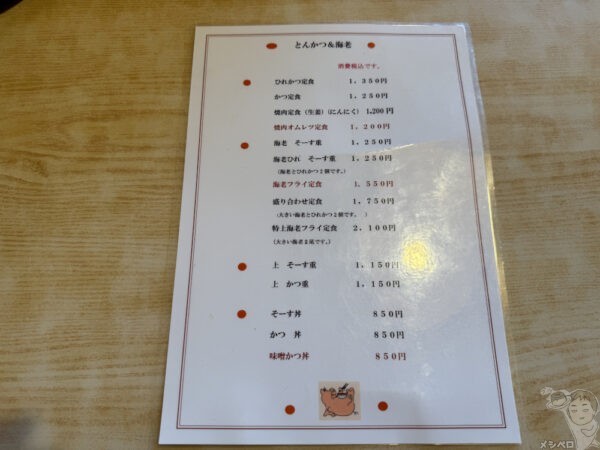 とんかつ＆海老
消費税込です。
ひれかつ定食 1，350円
かつ定食 1，250円
焼肉定食（生姜）（にんにく） 1,200円
焼肉オムレツ定食 1，200円
海老 そーす重 1，250円
海老ひれ そーす重 1，250円
（海老とひれかつ２個です。）
海老フライ定食 1，550円
盛り合わせ定食 1，750円
（大きい海老とひれかつ２個です。 ）
特上海老フライ定食 2，100円
（大きい海老２尾です。）
上 そーす重 1，150円
上 かつ重 1，150円
そーす丼 850円
かつ 丼 850円
味噌かつ丼 850円
メシペロ